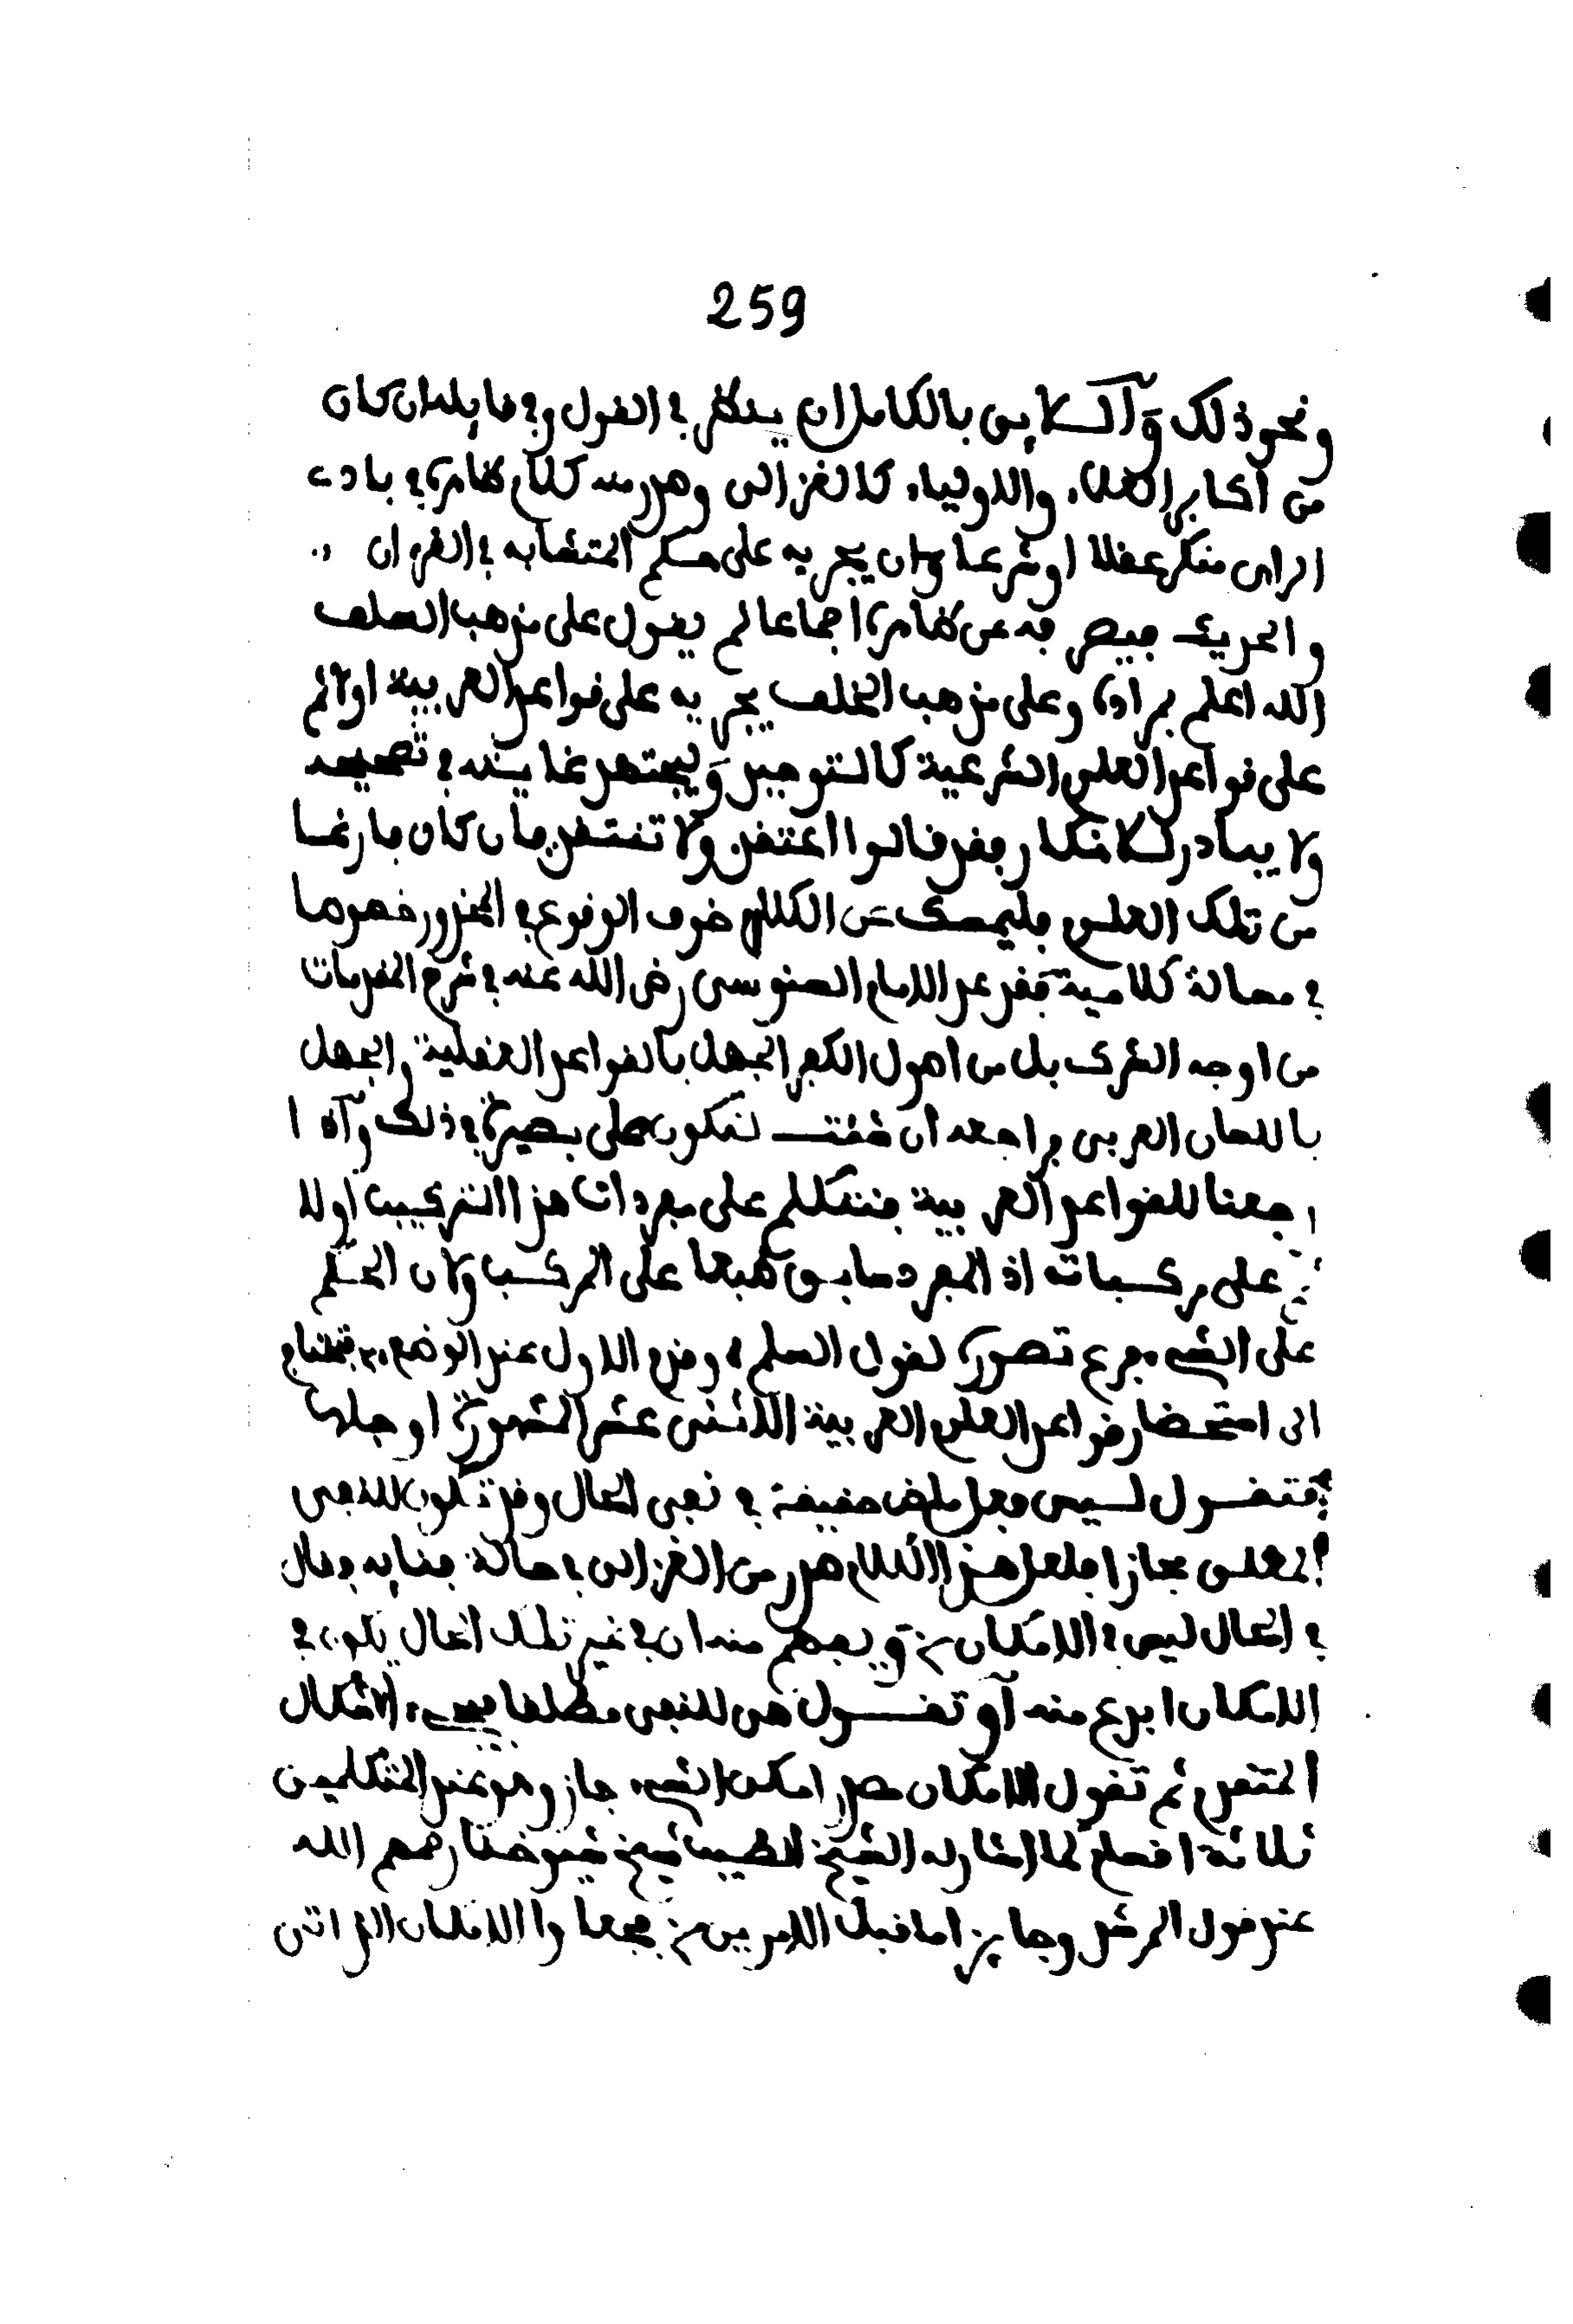 259
ونحو ذلك واللايق بالكامل ان ينظر في القول وفي قايله ان كان
من اكابر العلماء والاولياء كالغزالي وصدر منه كلام ظاهره في بادي
الراي منكر عقلا او شرعا وان يجريه على حكم المتشابه في القرءان
والحديث فيصرفه عن ظاهره اجماعا ثم يقول على مذهب السلف
الله اعلم بمراده وعلى مذهب الخلف يجريه على قواعد العربية اولا ثم
على قواعد العلوم الشرعية كالتوحيد وليجتهد غايته في تصحيحه
ولا يبادر للانكار فقد قالوا اعتقد ولا تنتقد فان كان فارغا
من تلك العلوم فليمسك عن الكلام خوف الوقوع في المحذور خصوصا
في مسالة كلامية فقد عد الامام السنوسي رضي الله عنه في شرح المقدمات
من اوجه الشرك بل من اصول الكفر الجهل بالقواعد العقلية والجهل
باللسان العربي فراجعه ان شئت لتكون على بصيرة في ذلك واذا
رجعنا للقواعد العربية فنتكلم على مفردات هذا التركيب اولا
ثم على مركباته اذ المفرد سابق طبعا على المركب ولان الحكم
على الشيء فرع تصوره لقول السلم وقدم الاول عند الوضع فتحتاج
الى استحضار قواعد العلوم العربية الاثنى عشر المشهورة او جلها
فتقول ليس فعل ملض حقيقة في نفي الحال وقد تكون للنفي
المطلق مجازا فلعل هذا الكلام صدر من الغزالي في حالة فنايه وقال
في الحال ليس في الامكان الخ ويفهم منه ان في غير تلك الحال يكون في
الامكان ابدع منه او تقول هي للنفي مطلقا فيجيء الاشكال
المتقدم ثم تقول الامكان مصدر امكن الشيء جاز وهو عند المتكلمين
ثلاثة اقسام كما اشار له الشيخ الطيب شيخ شيوخنا رحمهم الله
عند قول المرشد وجايز اما قبل الامرين الخ فيجعلوا الامكان الذاتي